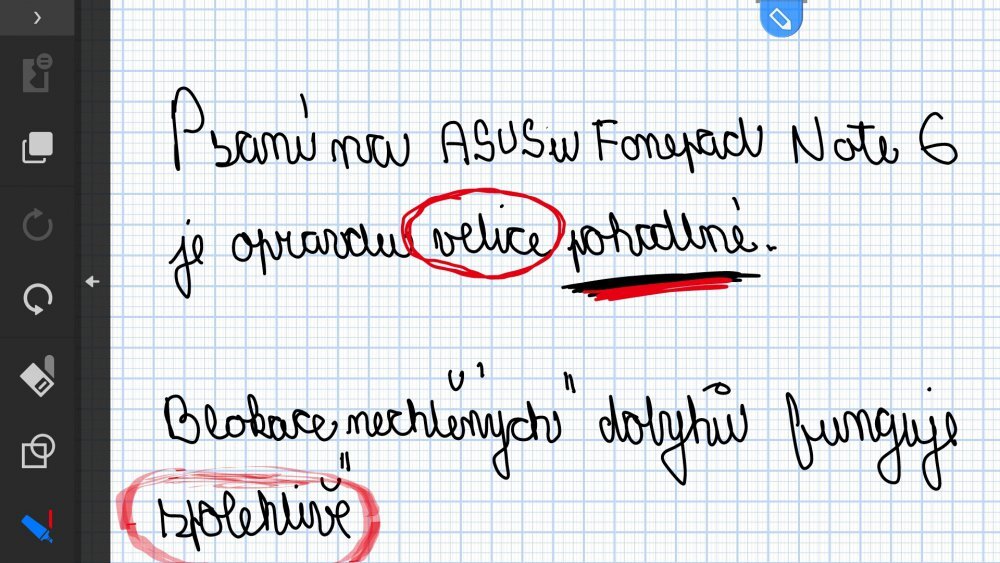 Psaní na ASUSu Fonepad Note 6
je opravdu velice pohodlné.
Blokace "nechtěných" dotyků funguje
spolehlivě